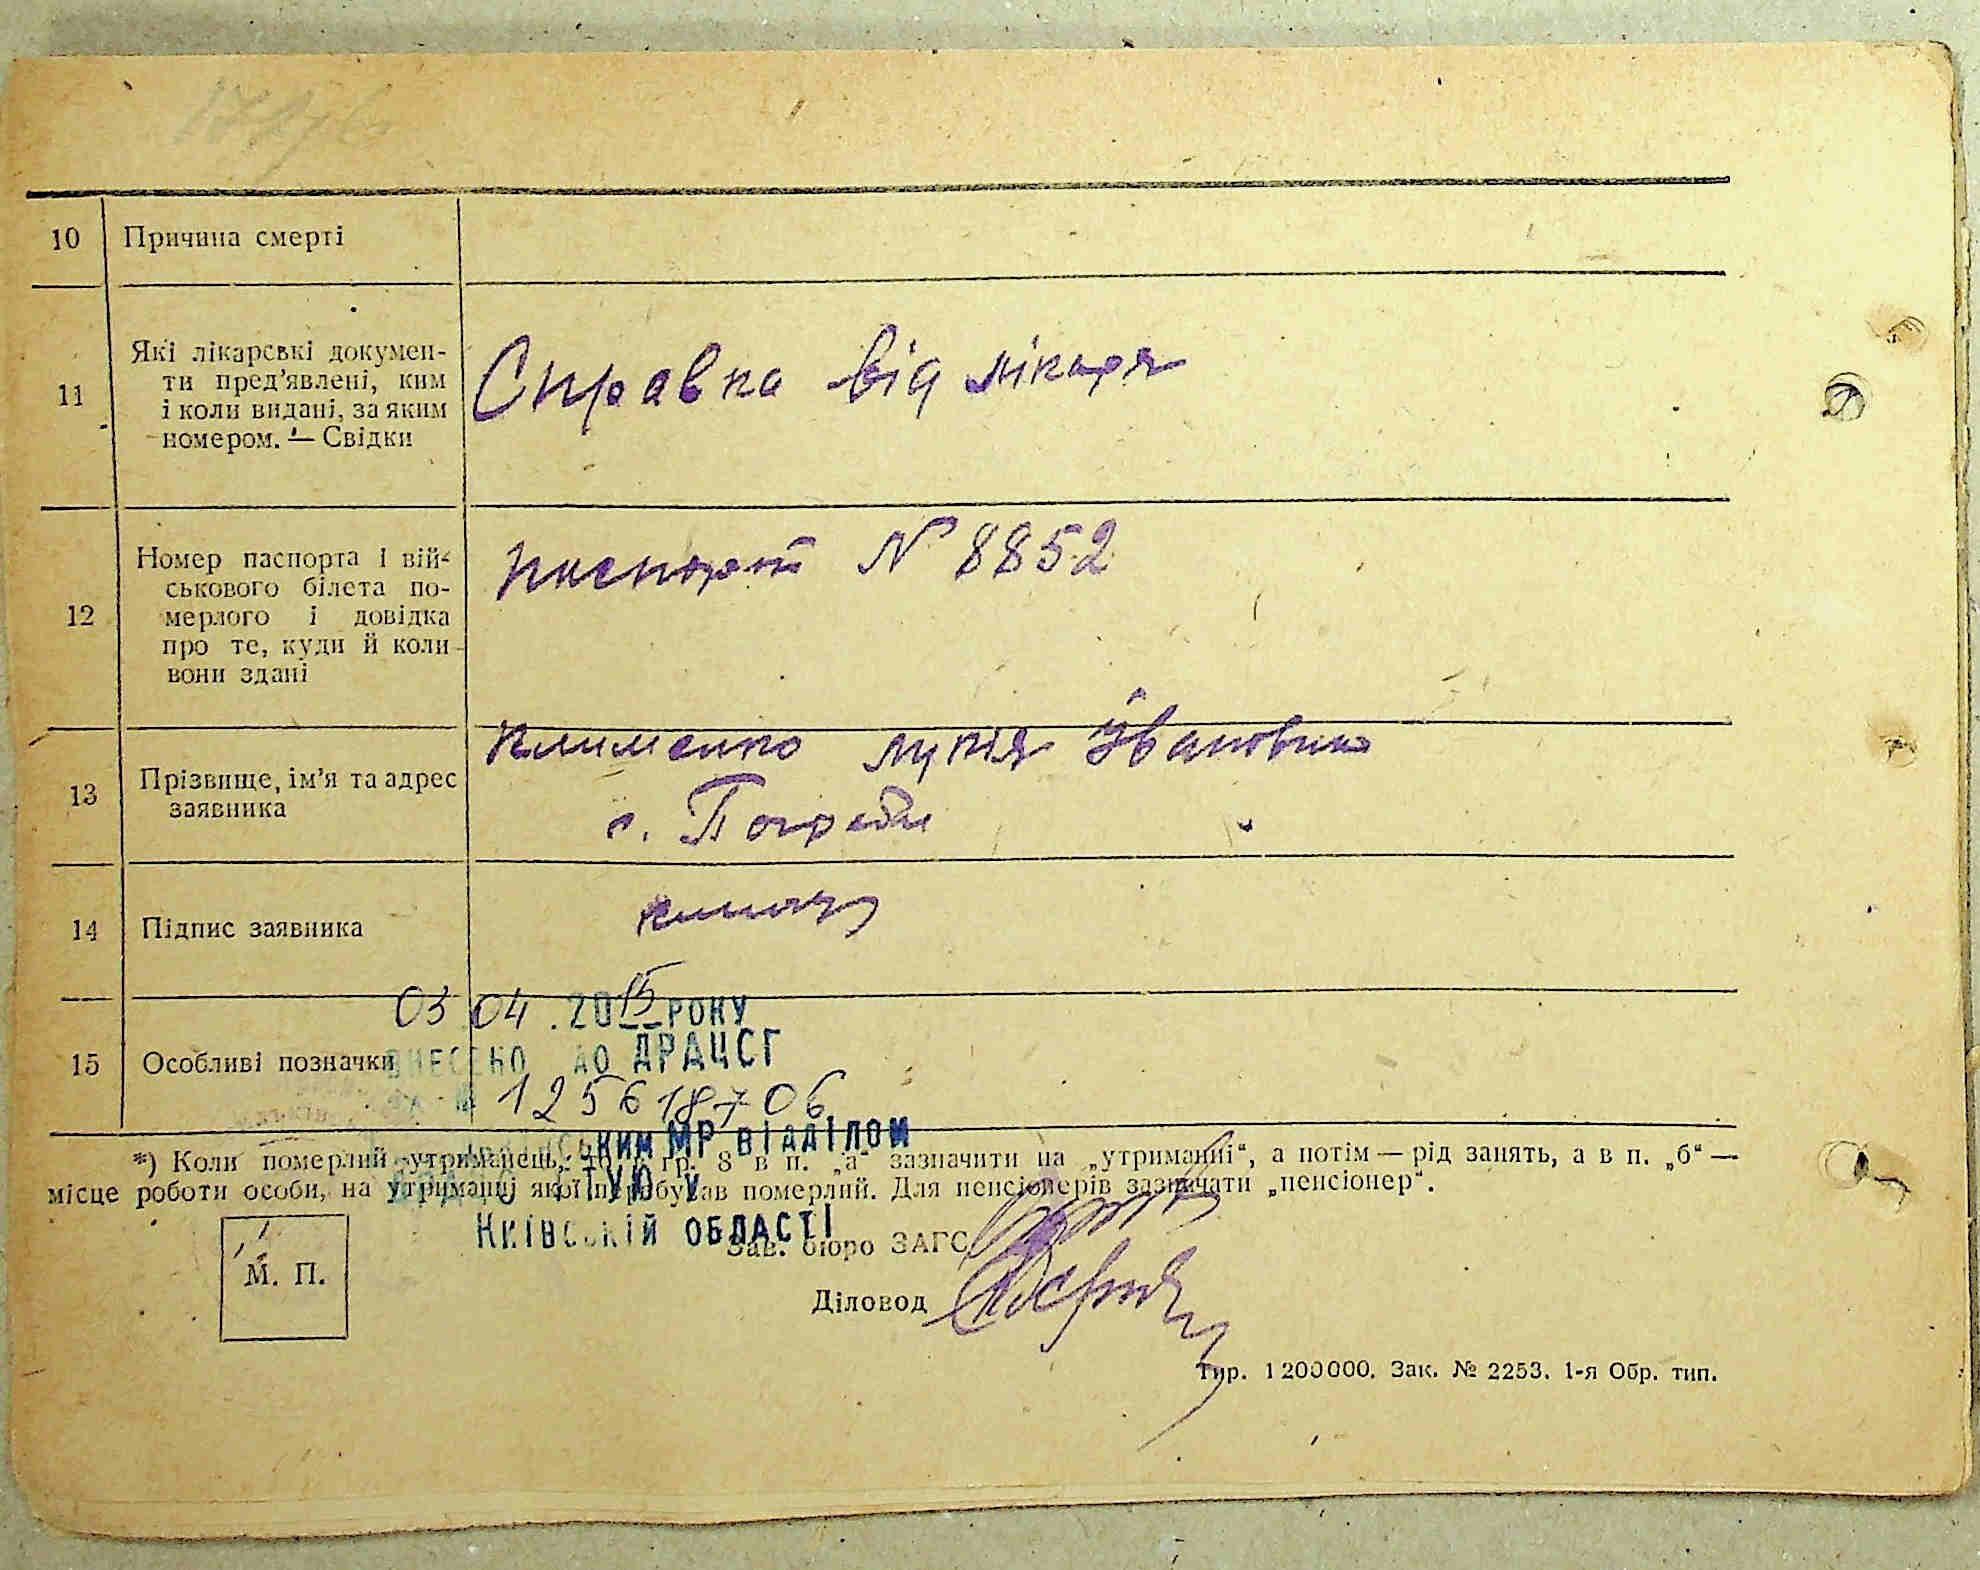 10 Причина смерті
11 Які лікарські докумен-
ти пред’явлені, ким
і коли видані, за яким
номером. — Свідки
Справка від лікаря
12 Номер паспорта і вій-
ськового білета по-
мерлого і довідка
про те, куди й коли
вони здані
паспорт № 8852
13 Прізвище, ім’я та адрес
заявника
Клименко Лукія Івановна
с. Погреби
14 Підпис заявника
15 Особливі позначки
03 04 . 2015 РОКУ
ВНЕСЕНО ДО ДРАЦСГ
№ 125618706
СЬКИМ МР ВІДДІЛОМ
*) Коли померлий утриманець, то в гр. 8 в п. „а“ зазначити на „утриманні“, а потім — рід занять, а в п. „б“ —
місце роботи особи, на утриманні якої перебував померлий. Для пенсіонерів зазначати „пенсіонер“.
КИЇВСЬКІЙ ОБЛАСТІ
Зав. бюро ЗАГС
М. П.
Діловод
Тир. 1200000. Зак. № 2253. 1-я Обр. тип.